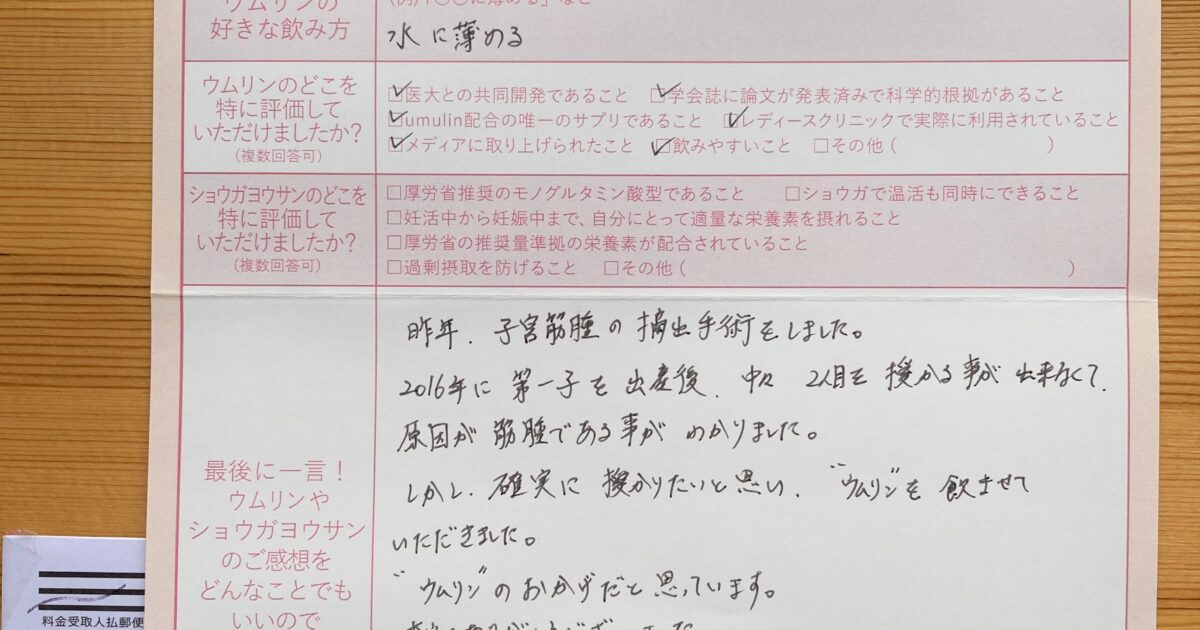 ウムリンの
好きな飲み方
水に薄める
ウムリンのどこを
特に評価して
いただけましたか?
(複数回答可)
☑医大との共同開発であること ☑学会誌に論文が発表済みで科学的根拠があること
☑umulin配合の唯一のサプリであること ☑レディースクリニックで実際に利用されていること
☑メディアに取り上げられたこと ☑飲みやすいこと □その他 ( )
ショウガヨウサンのどこを
特に評価して
いただけましたか?
(複数回答可)
□厚労省推奨のモノグルタミン酸型であること □ショウガで温活も同時にできること
□妊活中から妊娠中まで、自分にとって適量な栄養素を摂れること
□厚労省の推奨量準拠の栄養素が配合されていること
□過剰摂取を防げること □その他 ( )
昨年、子宮筋腫の摘出手術をしました。
2016年に第一子を出産後、中々 2人目を授かる事が出来なくて、
原因が筋腫である事がわかりました。
しかし、確実に授かりたいと思い、"ウムリン"を飲ませて
いただきました。
"ウムリン"のおかげだと思っています。
最後に一言!
ウムリンや
ショウガヨウサン
のご感想を
どんなことでも
いいので
料金受取人払郵便